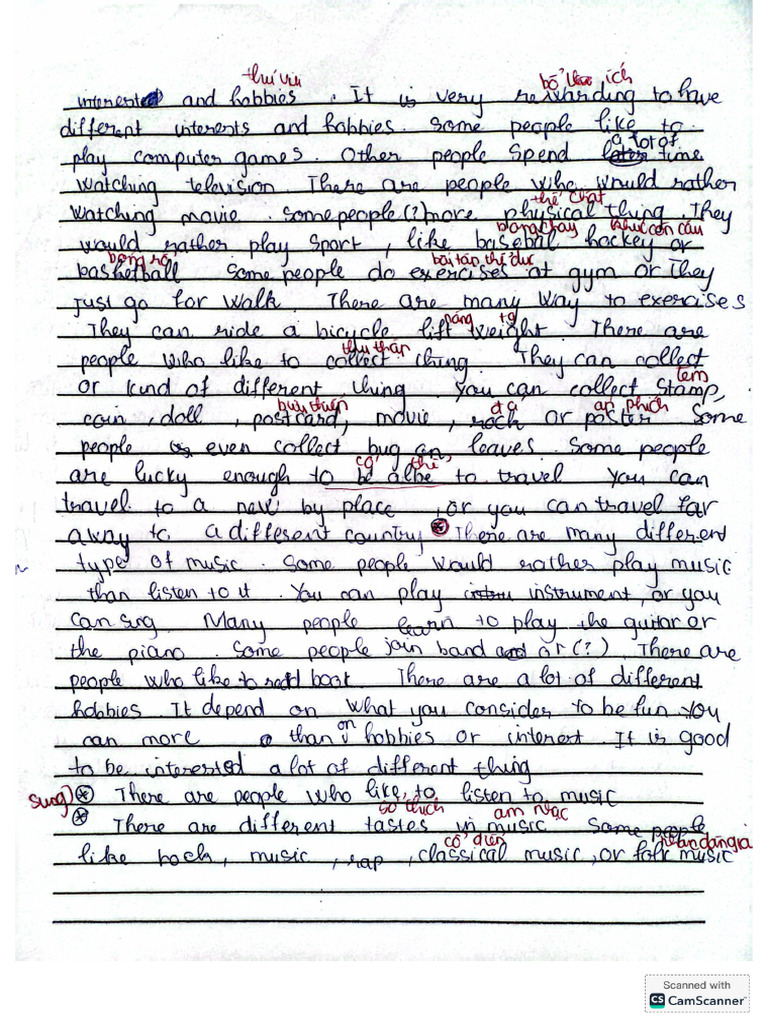 thú vị bổ ích
interested and hobbies . It is very rewarding to have
different interests and hobbies . Some people like to
play computer games . Other people spend a lot of time
watching television . There are people who would rather
thể chất
watching movie . Some people (?) more physical thing . They
bóng chày khúc côn cầu
would rather play sport , like basebal hockey or
bóng rổ bài tập thể dục
basketball Some people do exercises at gym or They
just go for walk . There are many way to exercises
nâng tạ
They can ride a bicycle lift weight . There are
thu thập
people who like to collect thing . They can collect
tem
or kind of different thing . You can collect stamp,
bưu thiếp đá áp phích
coin , doll , postcard , movie , rock or poster Some
people even collect bug leaves . Some people
có thể
are lucky enough to be albe to travel You can
travel to a new by place , or you can travel far
away to a different country ⊛ There are many different
type of music . Some people would rather play music
than listen to it . You can play instrument, or you
can sug . Many people learn to play the guitar or
the piano . Some people join band or (?) . There are
people who like to boot . There are a lot of different
hobbies . It depend on what you consider to be fun You
can more than on hobbies or interest . It is good
to be interested a lot of different thing
⊛ There are people who like to listen to music
sở thích âm nhạc
⊛ There are different tastes in music Some people
cổ điển
like bock , music , rap , classical music , or folk music
CamScanner
Scanned with
CS CamScanner